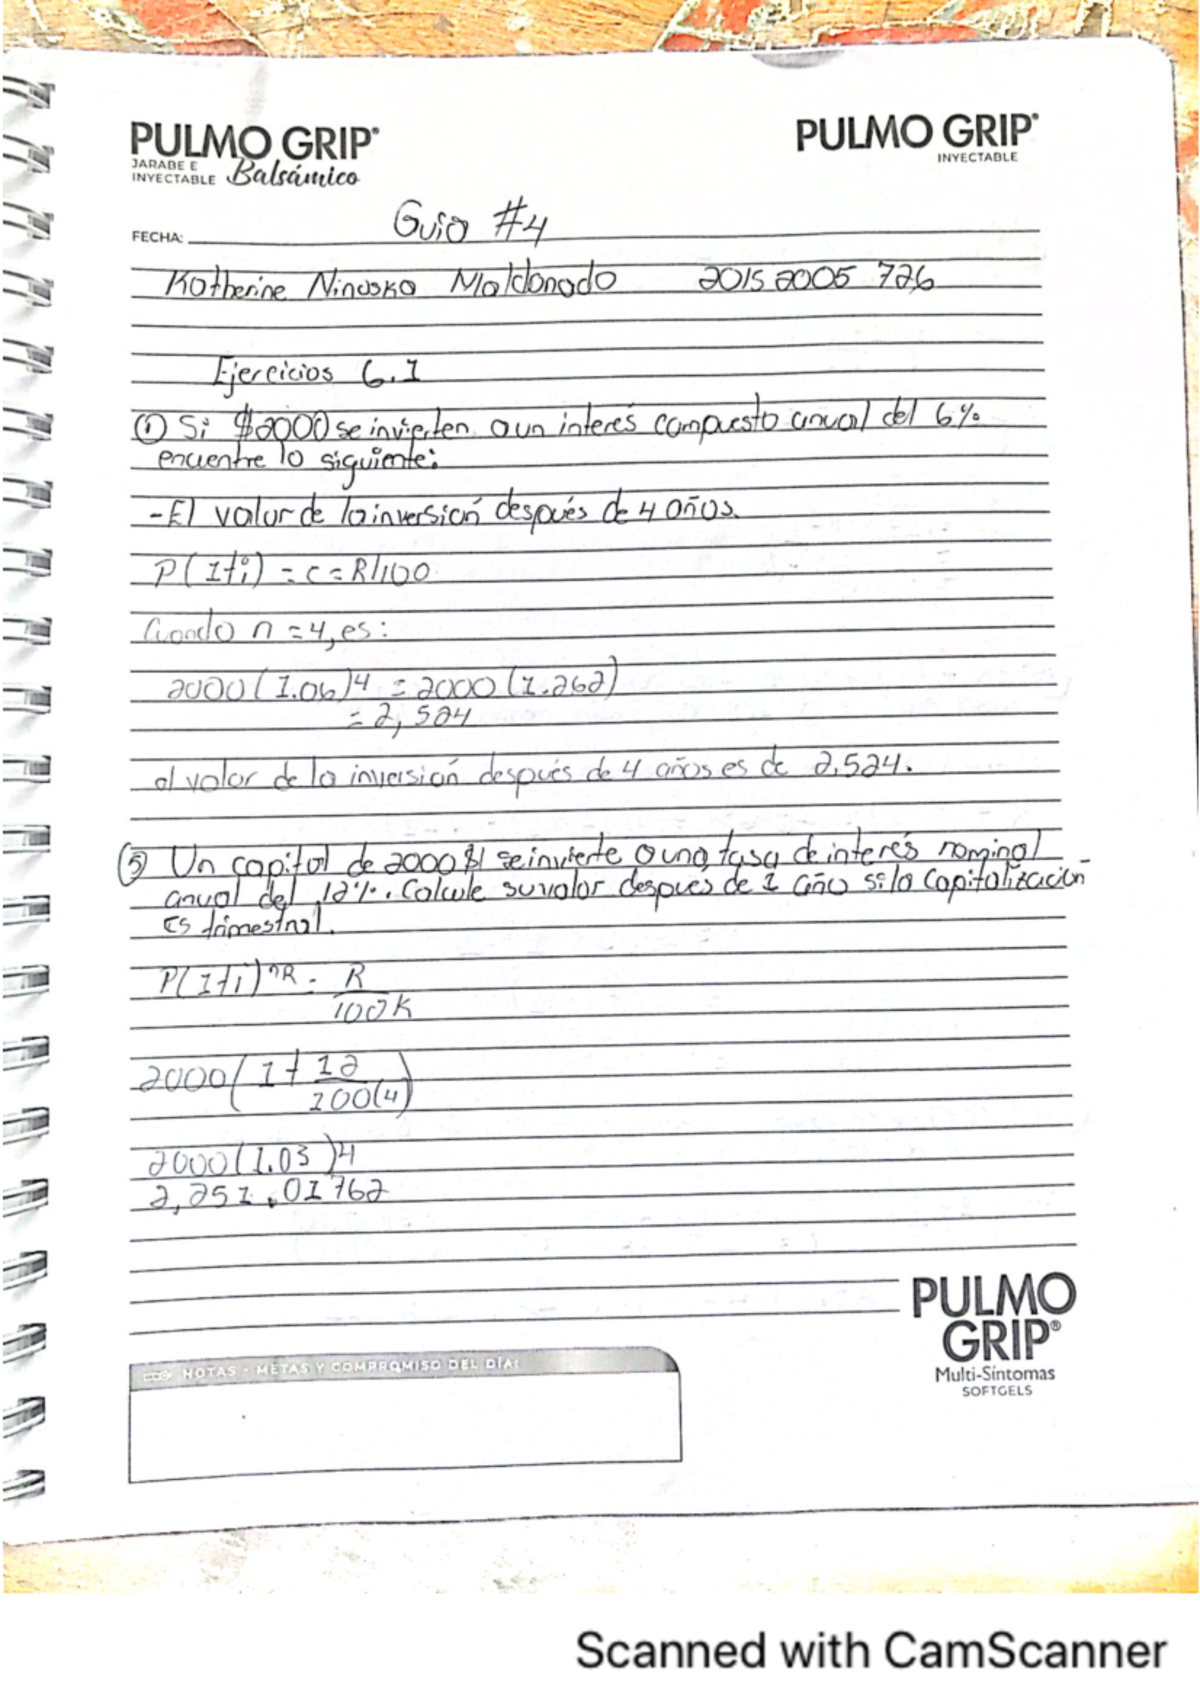 PULMO GRIP®
JARABE E
INYECTABLE Balsámico
PULMO GRIP®
INYECTABLE
FECHA: Guia #4
Katherine Ninoska Maldonado 20152005 726
Ejercicios 6.1
① Si $2000 se invierten a un interés compuesto anual del 6%
encuentre lo siguiente:
- El valor de la inversión después de 4 años.
P(1+i) = c = R/100
Cuando n = 4, es:
2000(1.06)4 = 2000(1.262)
= 2,524
el valor de la inversión después de 4 años es de 2.524.
⑤ Un capital de 2000 $ se invierte a una tasa de interés nominal
anual del 12%. Calcule su valor después de 1 año si la capitalización
es trimestral.
P(1+i)nR = R
100K
2000(1 + 12
100(4)
2000(1.03)4
2,251.01762
PULMO
GRIP®
Multi-Síntomas
SOFTGELS
NOTAS - METAS Y COMPROMISO DEL DÍA:
Scanned with CamScanner